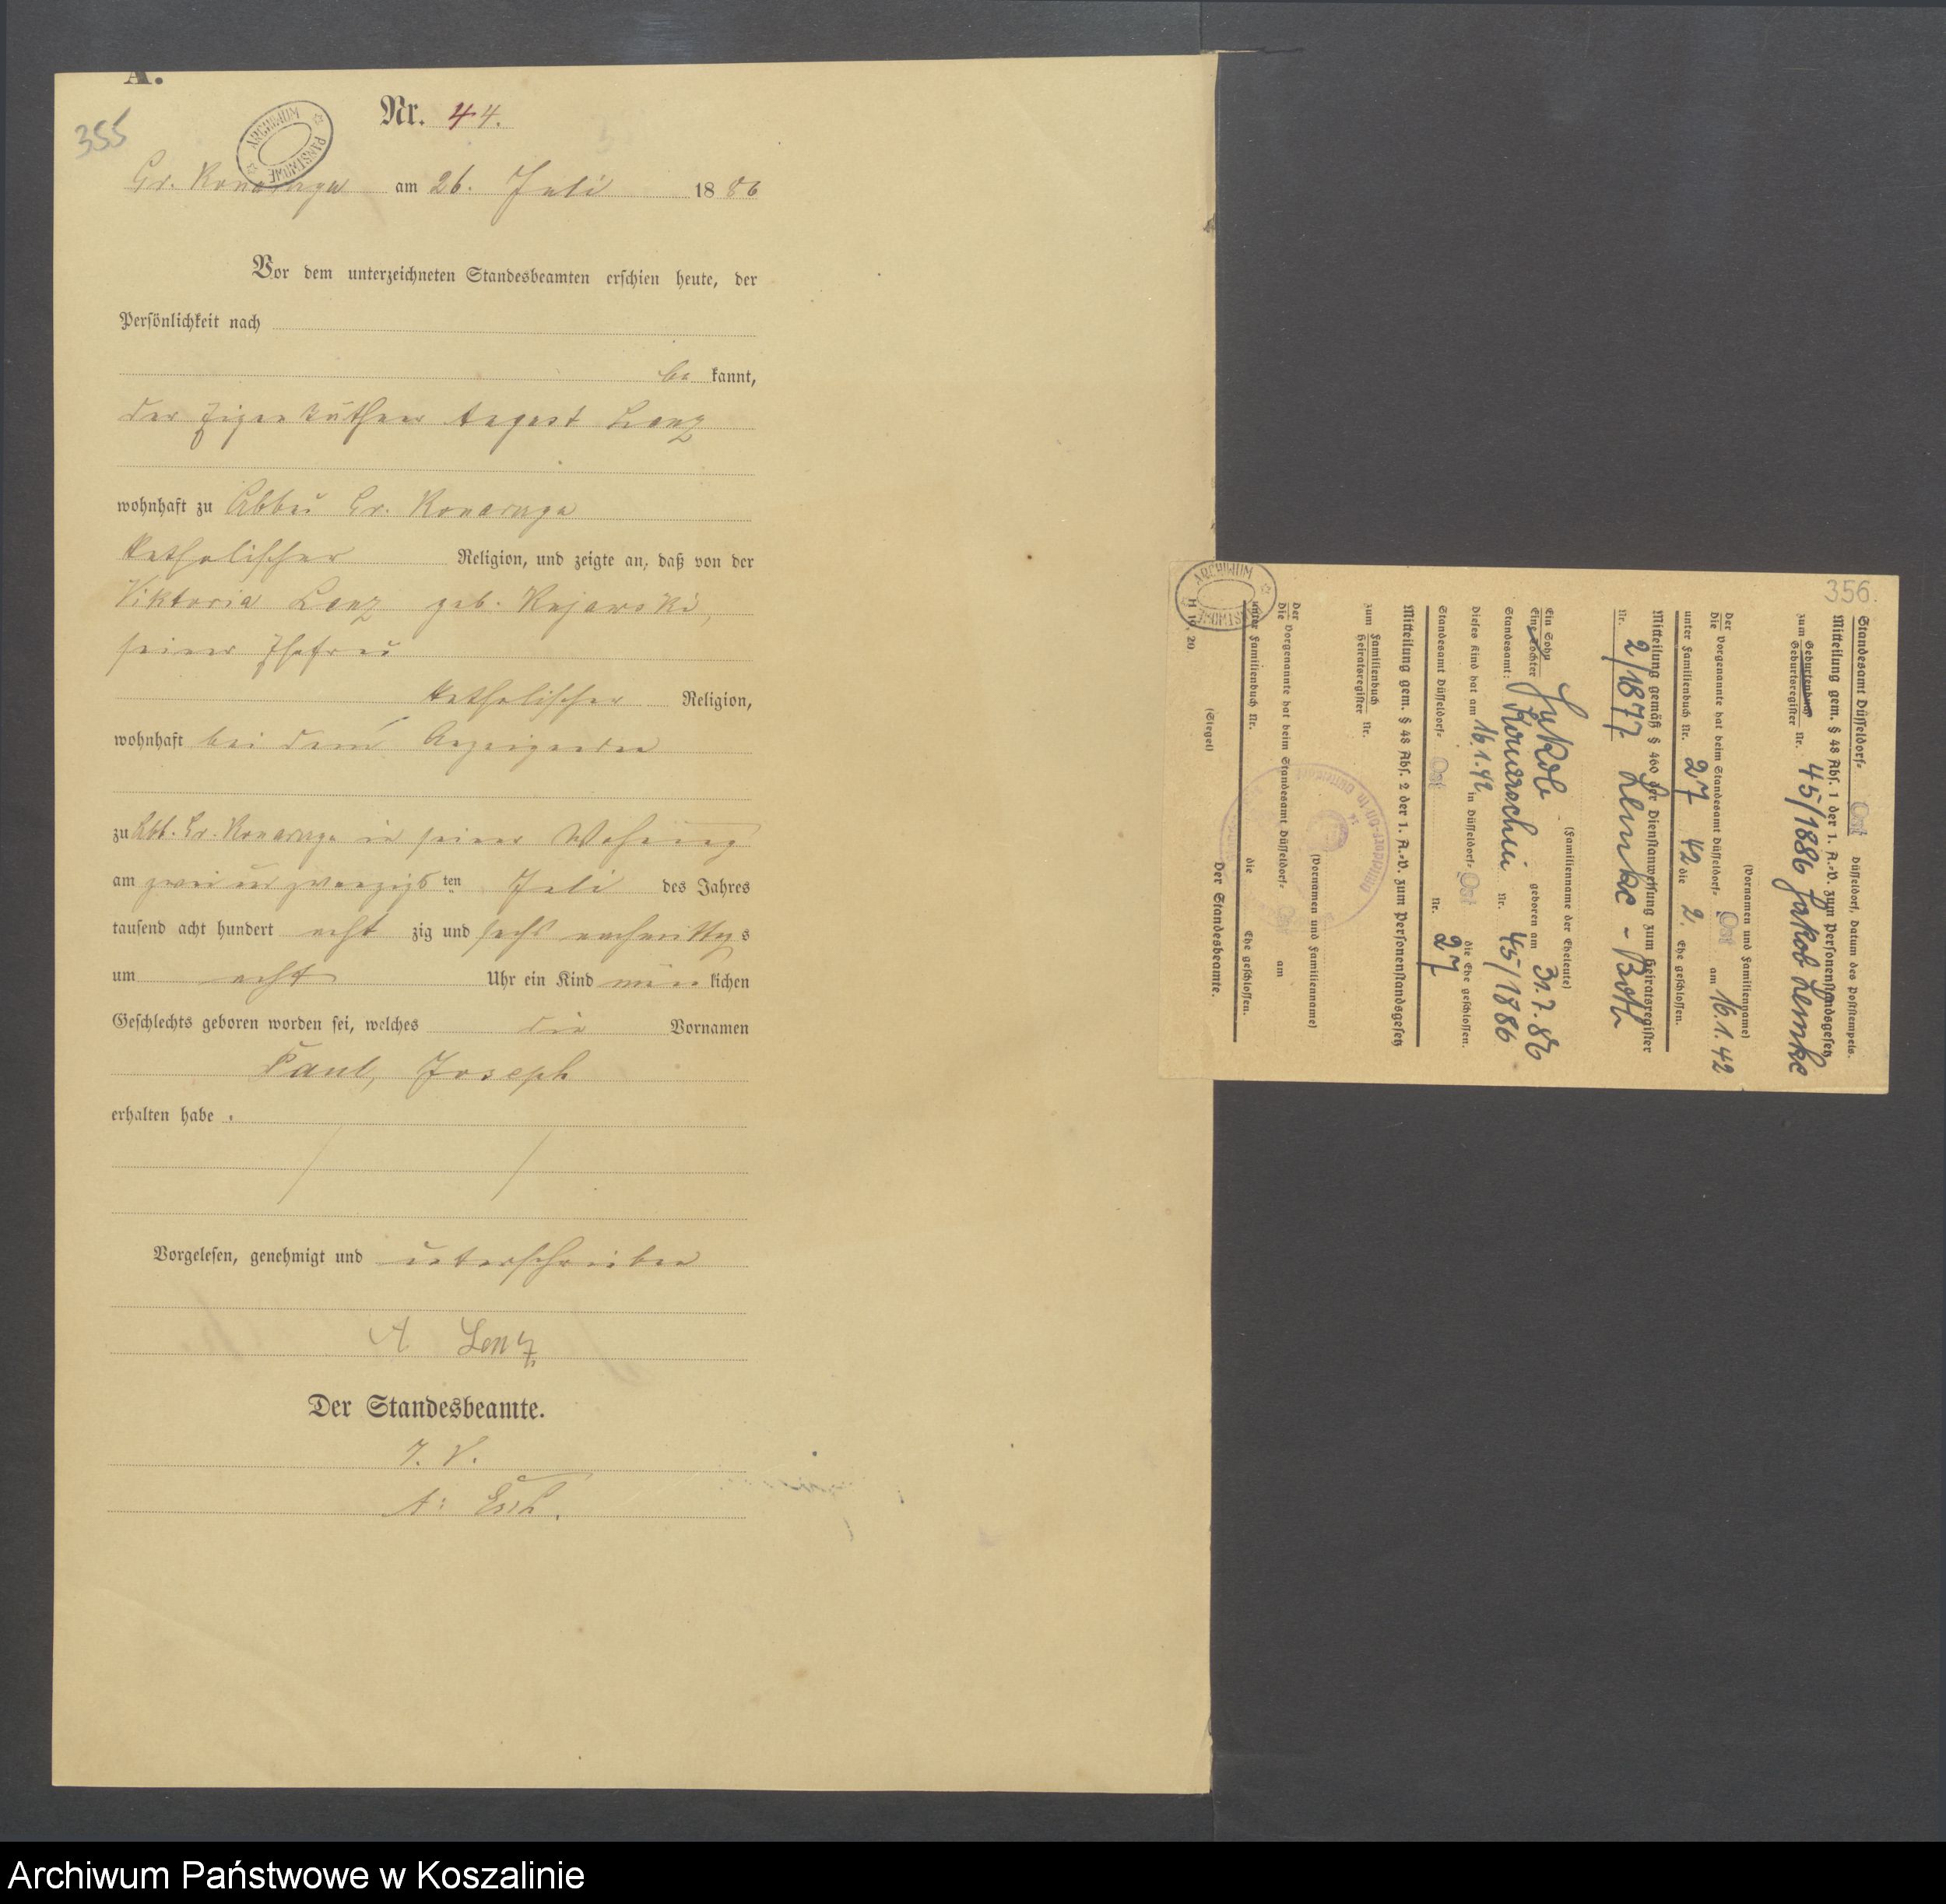 A.
355
Nr. 44.
ARCHIWUM PAŃSTWOWE
Gr. Konarzyn am 26. Juli 1886
Vor dem unterzeichneten Standesbeamten erschien heute, der
Persönlichkeit nach
be kannt,
der Eigenthümer August Lenz
wohnhaft zu Abbau Gr. Konarzyn
katholischer Religion, und zeigte an, daß von der
Viktoria Lenz geb. Kujawski,
seiner Ehefrau
katholischer Religion,
wohnhaft bei dem Anzeigenden
zu Abb. Gr. Konarzyn in seiner Wohnung
am zwei un zwanzigs ten Juli des Jahres
tausend acht hundert acht zig und sechs nachmittags
um acht Uhr ein Kind männ lichen
Geschlechts geboren worden sei, welches die Vornamen
Paul, Joseph
erhalten habe.
Vorgelesen, genehmigt und unterschrieben
A Lenz
Der Standesbeamte.
I. V.
356.
Standesamt Düsseldorf- Ost Düsseldorf, Datum des Poststempels.
Mitteilung gem. § 48 Abs. 1 der 1. A.-V. zum Personenstandsgesetz
zum Geburtenbuch Geburtsregister Nr. 45/1886 Jakob Lemke
(Vornamen und Familienname)
Der Die Vorgenannte hat beim Standesamt Düsseldorf- Ost am 16.1.42
unter Familienbuch Nr. 27 42 die 2. Ehe geschlossen.
Mitteilung gemäß § 460 der Dienstanweisung zum Heiratsregister
Nr. 2/1877 Lemke - Both
(Familienname der Eheleute)
Ein Sohn Eine Tochter Jakob geboren am 31.7.86
Standesamt: Nr. 45/1886
Dieses Kind hat am 16.1.42 in Düsseldorf- Ost die Ehe geschlossen.
Standesamt Düsseldorf- Ost Nr. 27
Mitteilung gem. § 48 Abs. 2 der 1. A.-V. zum Personenstandsgesetz
zum Familienbuch Heiratsregister Nr.
(Vornamen und Familienname)
Der Die Vorgenannte hat beim Standesamt Düsseldorf- Ost am
unter Familienbuch Nr. die Ehe geschlossen.
Der Standesbeamte.
(Siegel)
H 19. 20.
ARCHIWUM PAŃSTWOWE
Archiwum Państwowe w Koszalinie